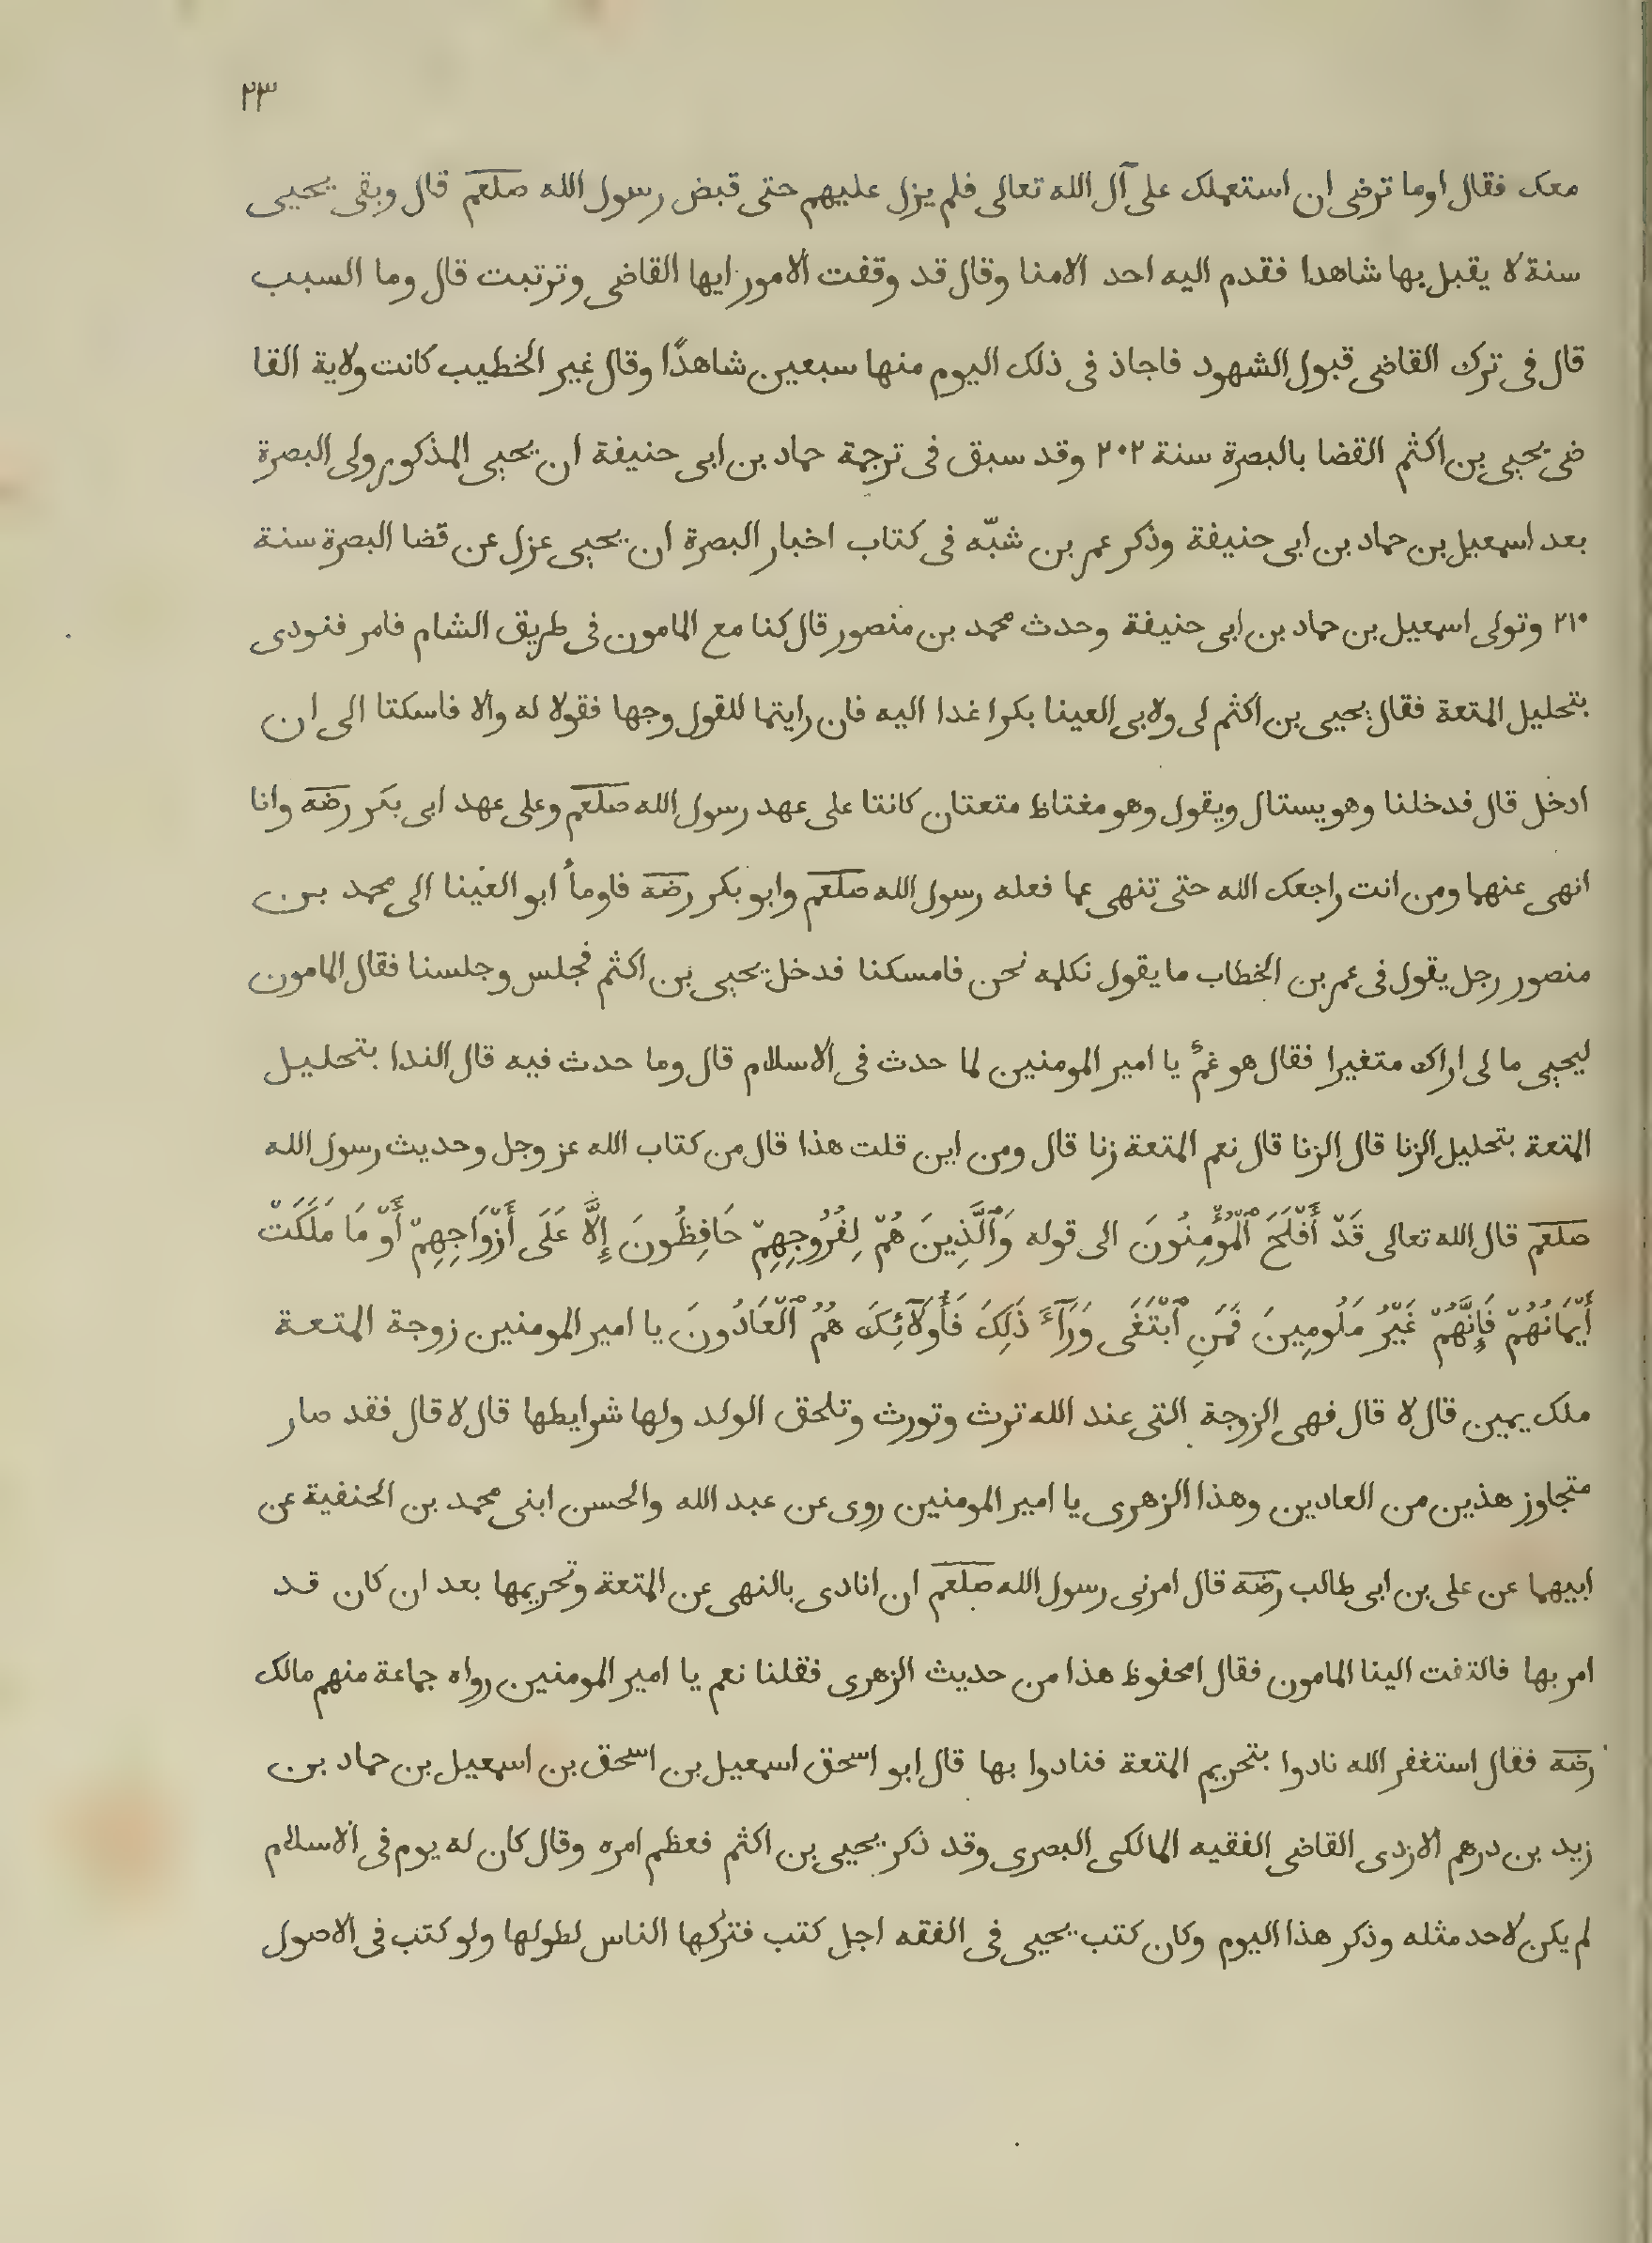 ٢٣
معك فقال اوما ترضى ان استعملك على آل الله تعالى فلم يزل عليهم حتى قبض رسول الله صلعم قال وبقى يحيى
سنة لا يقبل بها شاهدا فقدم اليه احد الامنا وقال قد وقفت الامور ايها القاضى وترتبت قال وما السبب
قال فى ترك القاضى قبول الشهود فاجاذ فى ذلك اليوم منها سبعين شاهدًا وقال غير الخطيب كانت ولاية القا
ضى يحيى بن اكثم القضا بالبصرة سنة ٢٠٢ وقد سبق فى ترجمة حماد بن ابى حنيفة ان يحيى المذكور ولى البصرة
بعد اسمعيل بن حماد بن ابى حنيفة وذكر عمر بن شبّه فى كتاب اخبار البصرة ان يحيى عزل عن قضا البصرة سنة
٢١٠ وتولى اسمعيل بن حماد بن ابى حنيفة وحدث محمد بن منصور قال كنا مع المامون فى طريق الشام فامر فنودى
بتحليل المتعة فقال يحيى بن اكثم لى ولابى العينا بكرا غدا اليه فان رايتما للقول وجها فقولا له والا فاسكتا الى ان
ادخل قال فدخلنا وهو يستال ويقول وهو مغتاظ متعتان كانتا على عهد رسول الله صلعم وعلى عهد ابى بكر رضه وانا
انهى عنهما ومن انت راجعك الله حتى تنهى عما فعله رسول الله صلعم وابو بكر رضه فاومأ ابو العينا الى محمد بن
منصور رجل يقول فى عمر بن الخطاب ما يقول نكلمه نحن فامسكنا فدخل يحيى بن اكثم فجلس وجلسنا فقال المامون
ليحيى ما لى اراك متغيرا فقال هو غمٌ يا امير المومنين لما حدث فى الاسلام قال وما حدث فيه قال الندا بتحليل
المتعة بتحليل الزنا قال الزنا قال نعم المتعة زنا قال ومن اين قلت هذا قال من كتاب الله عز وجل وحديث رسول الله
صلعم قال الله تعالى قَدْ أَفْلَحَ ٱلْمُؤْمِنُونَ الى قوله وَٱلَّذِينَ هُمْ لِفُرُوجِهِمْ حَافِظُونَ إِلَّا عَلَى أَزْوَاجِهِمْ أَوْ مَا مَلَكَتْ
أَيْمَانُهُمْ فَإِنَّهُمْ غَيْرُ مَلُومِينَ فَمَنِ ٱبْتَغَى وَرَآءَ ذَلِكَ فَأُولَآئِكَ هُمُ ٱلْعَادُونَ يا امير المومنين زوجة المتعة
ملك يمين قال لا قال فهى الزوجة التى عند الله ترث وتورث وتلحق الولد ولها شرايطها قال لا قال فقد صار
متجاوز هذين من العادين وهذا الزهرى يا امير المومنين روى عن عبد الله والحسن ابنى محمد بن الحنفية عن
ابيهما عن على بن ابى طالب رضه قال امرنى رسول الله صلعم ان انادى بالنهى عن المتعة وتحريمها بعد ان كان قد
امر بها فالتفت الينا المامون فقال امحفوظ هذا من حديث الزهرى فقلنا نعم يا امير المومنين رواه جماعة منهم مالك
رضه فقال استغفر الله نادوا بتحريم المتعة فنادوا بها قال ابو اسحق اسمعيل بن اسحق بن اسمعيل بن حماد بن
زيد بن درهم الازدى القاضى الفقيه المالكى البصرى وقد ذكر يحيى بن اكثم فعظم امره وقال كان له يوم فى الاسلام
لم يكن لاحد مثله وذكر هذا اليوم وكان كتب يحيى فى الفقه اجل كتب فتركها الناس لطولها ولو كتب فى الاصول